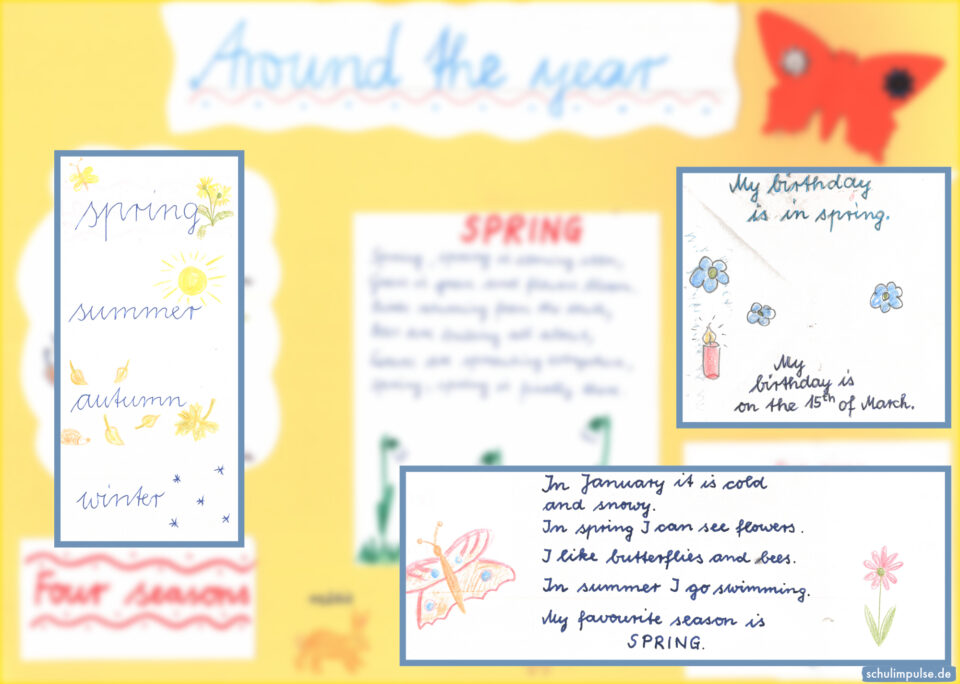 Around the year
spring
summer
autumn
winter
Four seasons
SPRING
Spring, spring is coming soon,
My birthday
is in spring.
My
birthday is
on the 15th of March.
In January it is cold
and snowy.
In spring I can see flowers.
I like butterflies and bees.
In summer I go swimming.
My favourite season is
SPRING.
schulimpulse.de